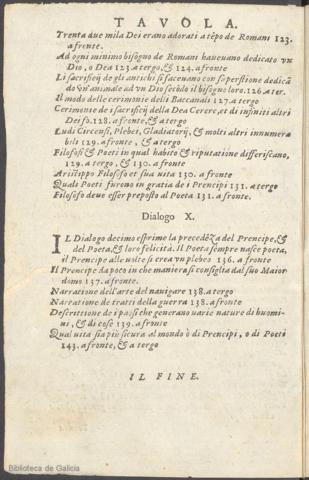 TAVOLA.
Trenta due mila Dei erano adorati a tẽpo de Romani 123.
a fronte.
Ad ogni minimo bisogno de Romani haueuano dedicato vn
Dio, o Dea 123. a tergo, & 124. a fronte
Li sacrificij de gli antichi si faceuano con superstione dedicã
do vn'animale ad vn Dio secõdo il bisogno loro. 126. a ter.
Il modo delle cerimonie delli Baccanali 127. a tergo
Cerimonie de i sacrificij della Dea Cerere, et di infiniti altri
Dei fo. 128. a fronte, & a tergo
Ludi Circensi, Plebei, Gladiatorij, & molti altri innumera
bili 129. a fronte, & a tergo
Filosofi & Poeti in qual habito & riputatione differiscano,
129. a tergo, & 130. a fronte
Aristippo Filosofo et sua vita 130. a fronte
Quali Poeti furono in gratia de i Prencipi 131. a tergo
Filosofo deue esser preposto al Poeta 131. a fronte.
Dialogo X.
IL Dialogo decimo esprime la precedẽza del Prencipe, &
del Poeta, & loro felicità. Il Poeta sempre nasce poeta,
il Prencipe alle volte si crea vn plebeo 136. a fronte
Il Prencipe da poco in che maniera si consiglia dal suo Maior
domo 137. a fronte.
Narratione dell'arte del nauigare 138. a tergo
Narratione de tratti della guerra 138. a fronte
Descrittione de i paesi che generano varie nature di huomi
ni, & di cose 139. a fronte
Qual vita sia più sicura al mondo ò di Prencipi, o di Poeti
143. a fronte, & a tergo
IL FINE.
Biblioteca de Galicia